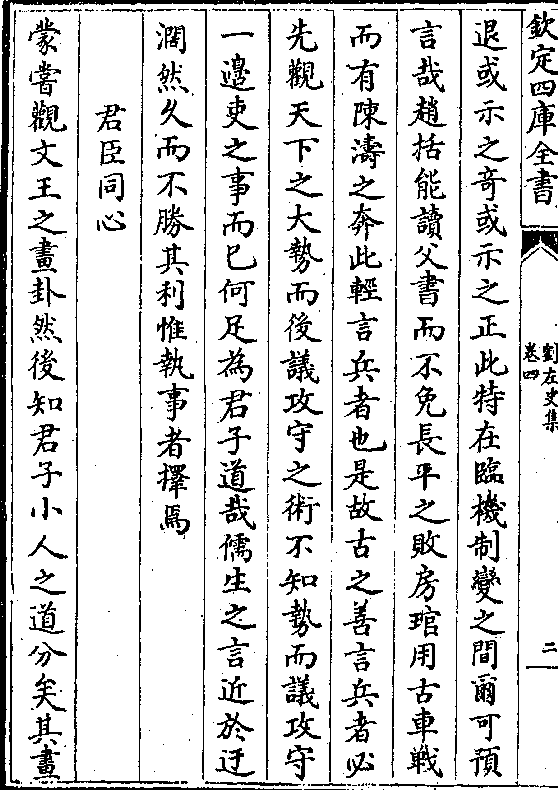 欽定四庫全書
劉左史集
卷四
二
退或示之奇或示之正此特在臨機制變之間爾可預
言哉趙括能讀父書而不免長平之敗房琯用古車戰
而有陳濤之奔此輕言兵者也是故古之善言兵者必
先觀天下之大勢而後議攻守之術不知勢而議攻守
一邊吏之事而已何足為君子道哉儒生之言近於迂
濶然久而不勝其利惟執事者擇焉
君臣同心
蒙嘗觀文王之畫卦然後知君子小人之道分矣其畫